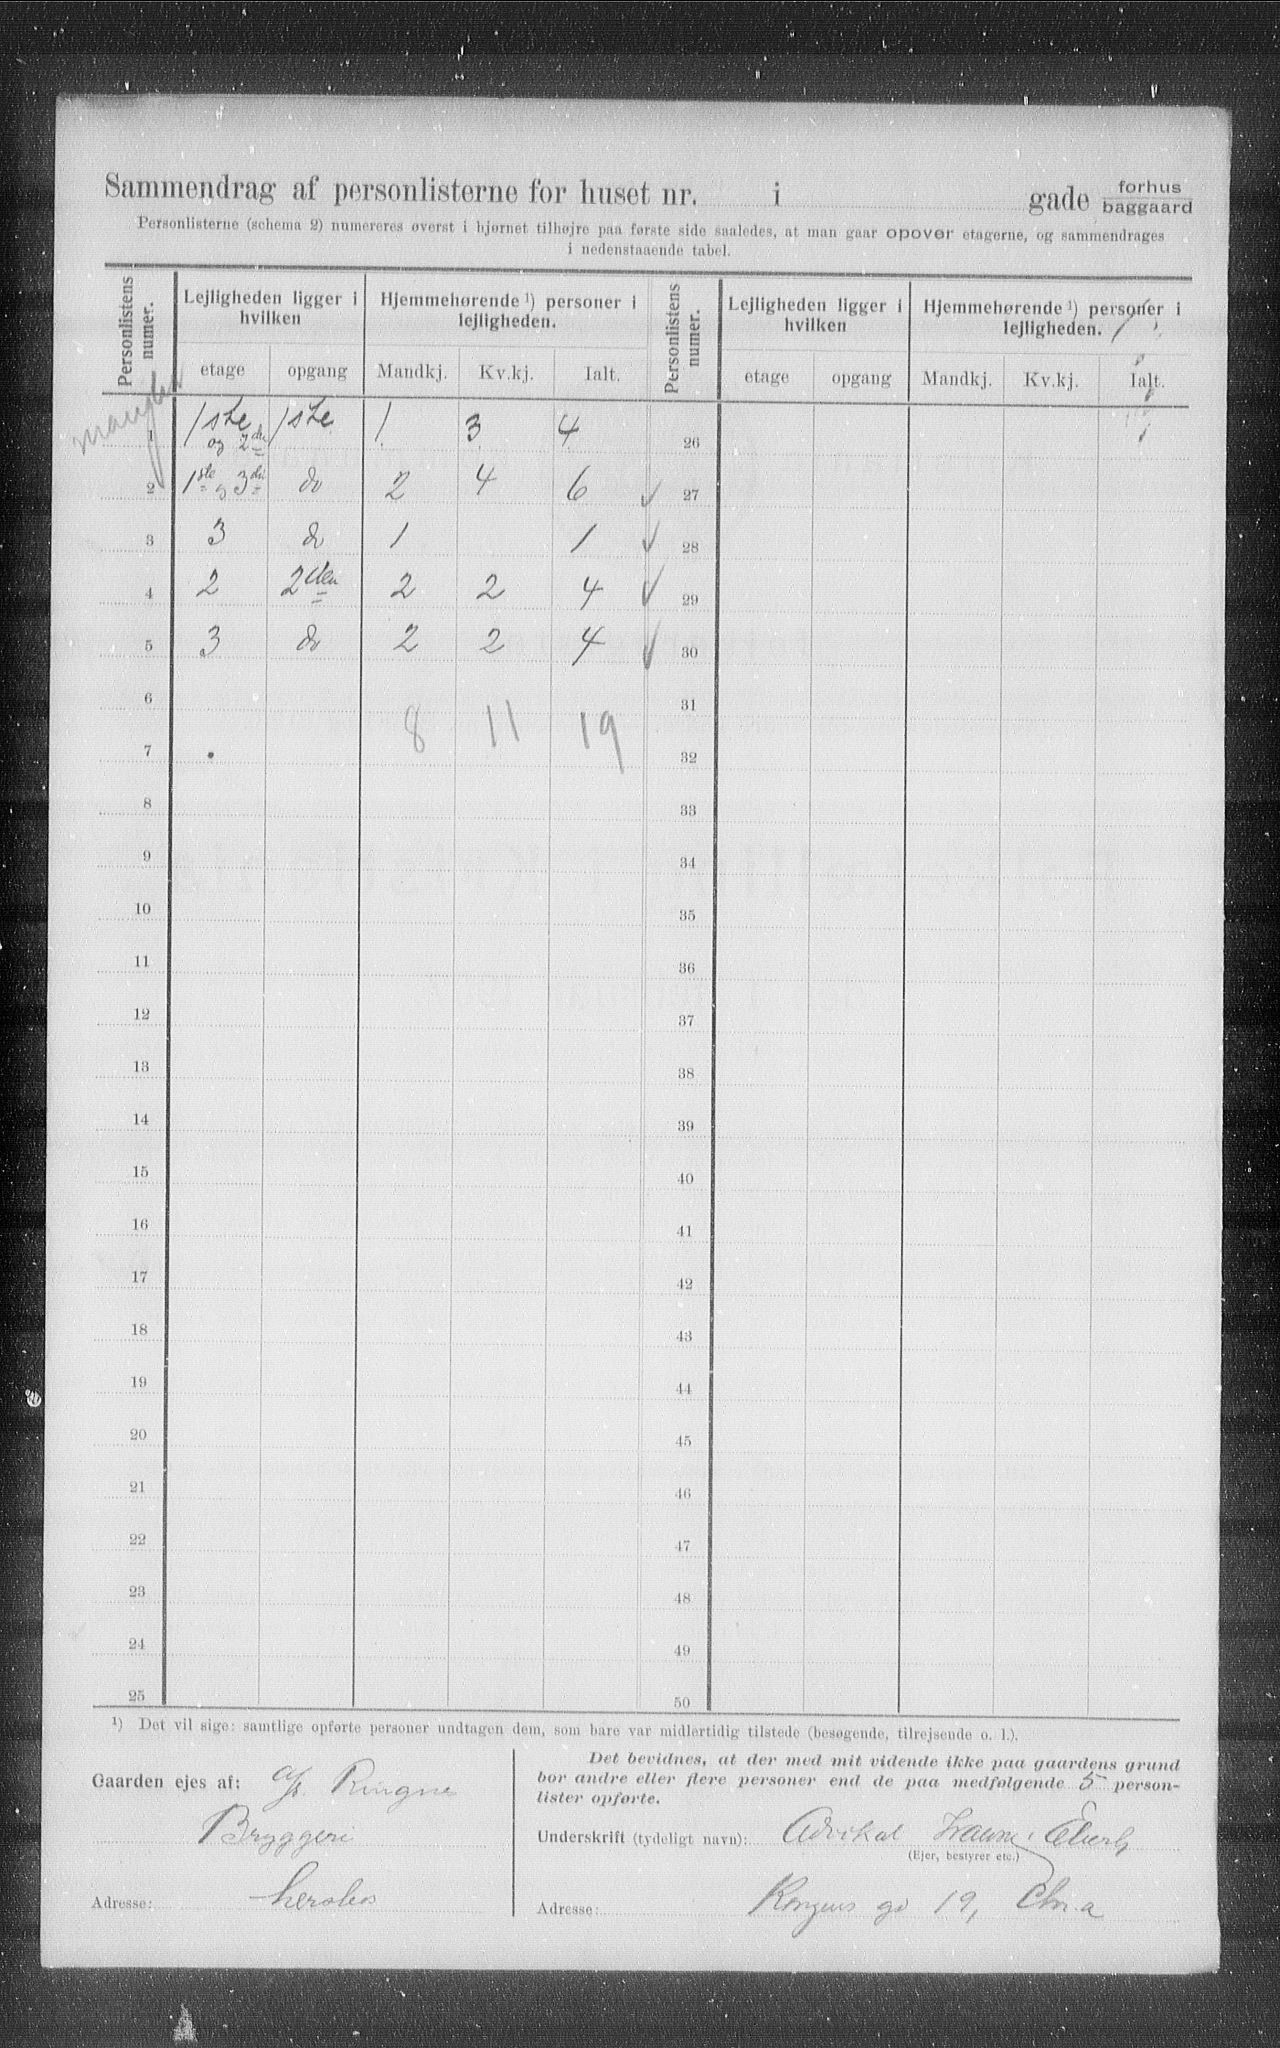 Sammendrag af personlisterne for huset nr. i gade forhus baggaard
Personlisterne (schema 2) numereres øverst i hjørnet tilhøjre paa første side saaledes, at man gaar opover etagerne, og sammendrages
i nedenstaaende tabel.
Personlistens numer. Lejligheden ligger i hvilken Hjemmehørende ¹) personer i lejligheden. Personlistens numer. Lejligheden ligger i hvilken Hjemmehørende ¹) personer i lejligheden.
etage opgang Mandkj. Kv.kj. Ialt. etage opgang Mandkj. Kv.kj. Ialt.
mangler
1 1ste og 2den 1ste 1 3 4 26
2 1ste og 3die do 2 4 6 ✓ 27
3 3 do 1 1 ✓ 28
4 2 2den 2 2 4 ✓ 29
5 3 do 2 2 4 ✓ 30
6 8 11 19 31
7 32
8 33
9 34
10 35
11 36
12 37
13 38
14 39
15 40
16 41
17 42
18 43
19 44
20 45
21 46
22 47
23 48
24 49
25 50
¹) Det vil sige: samtlige opførte personer undtagen dem, som bare var midlertidig tilstede (besøgende, tilrejsende o. l.).
Gaarden ejes af: A/S Ringnes
Bryggeri
Adresse:
Det bevidnes, at der med mit vidende ikke paa gaardens grund
bor andre eller flere personer end de paa medfølgende 5 person-
lister opførte.
Underskrift (tydeligt navn):
(Ejer, bestyrer etc.)
Adresse: Kongens gd 19, Chr.a